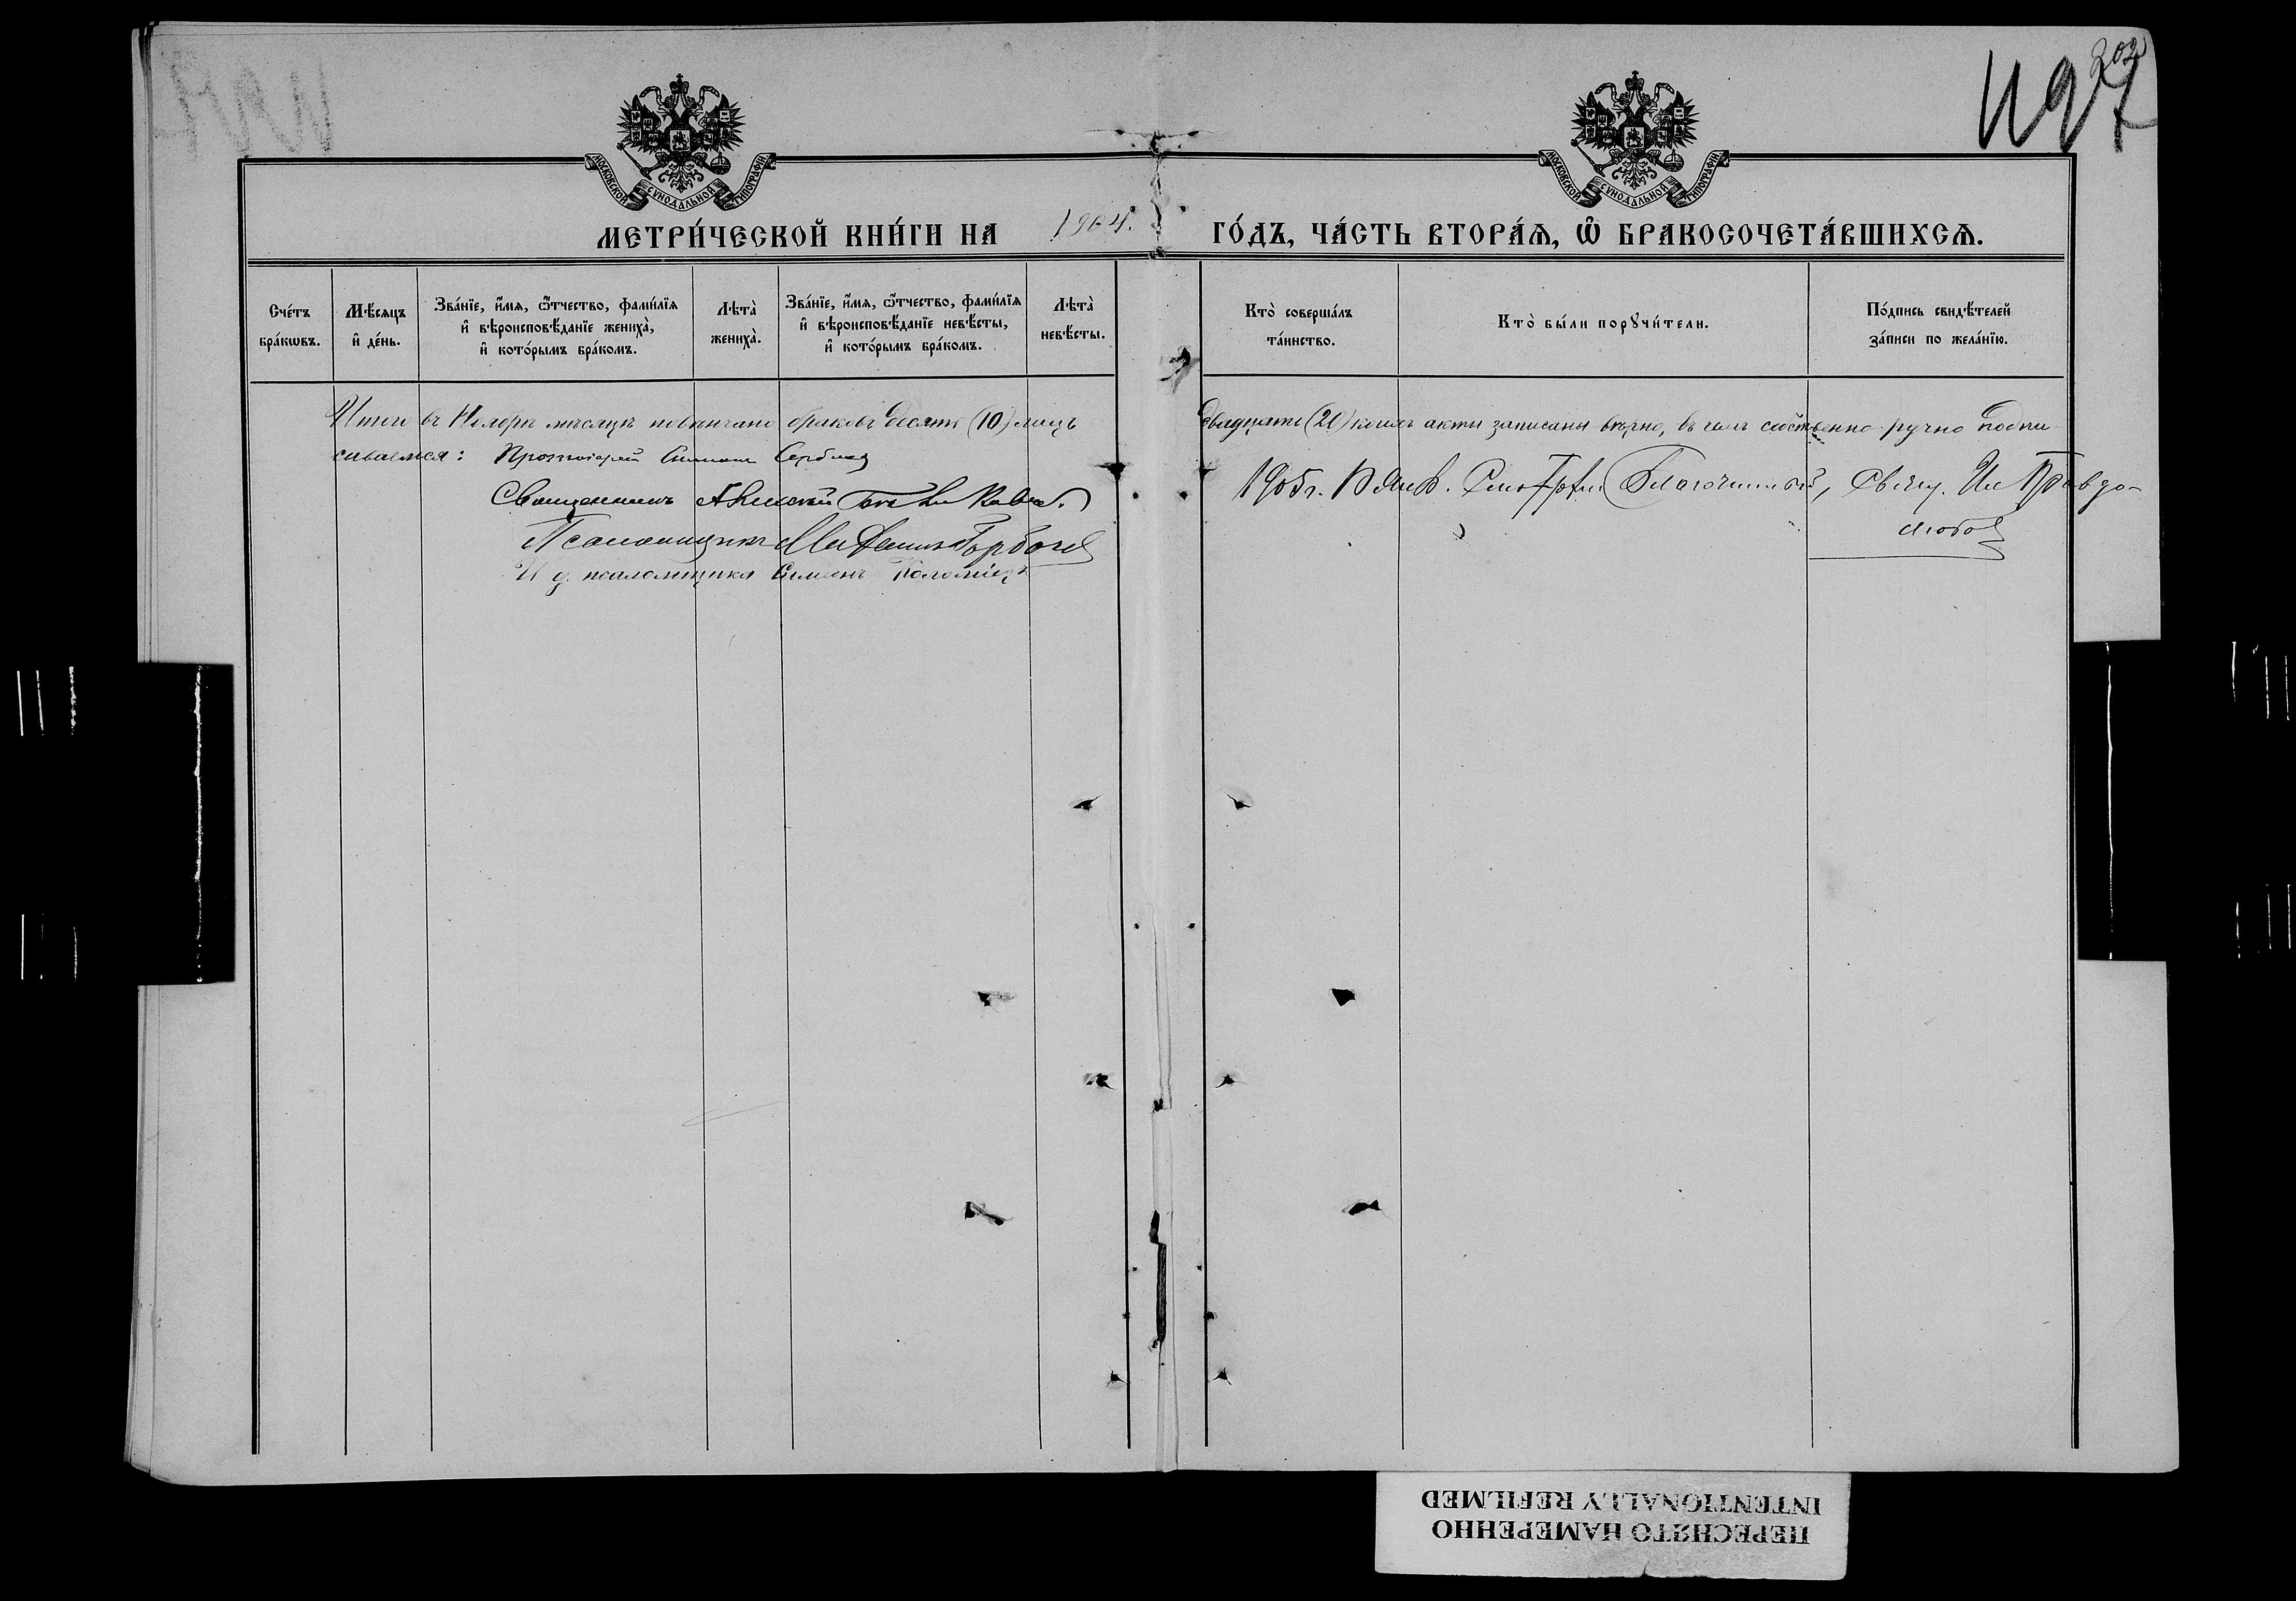 202
1197
МОСКОВСКОЙ СѴНОДАЛЬНОЙ ТИПОГРАФІИ
МОСКОВСКОЙ СѴНОДАЛЬНОЙ ТИПОГРАФІИ
МЕТРИ́ЧЕСКОЙ КНИ́ГИ НА 1904. ГО́ДЪ, ЧА́СТЬ ВТОРА́Ѧ, Ѡ҆ БРАКОСОЧЕТА́ВШИХСѦ.
Сче́тъ бра́кѡвъ.
Мѣ́сяцъ и҆ де́нь.
Зва́нїе, и҆́мя, ѻ҆́тчество, фами́лїя и҆ вѣроисповѣ́данїе жениха̀, и҆ кото́рымъ бра́комъ.
Лѣта̀ жениха̀.
Зва́нїе, и҆́мя, ѻ҆́тчество, фами́лїя и҆ вѣроисповѣ́данїе невѣ́сты, и҆ кото́рымъ бра́комъ.
Лѣта̀ невѣ́сты.
Кто̀ соверша́лъ та́инство.
Кто̀ бы́ли порꙋчи́тели.
По́дпись свидѣ́телей за́писи по жела́нїю.
Итого въ Ноябрѣ мѣсяцѣ повѣнчано браковъ десять (10) лицъ двадцать (20) коихъ акты записаны вѣрно, въ чемъ собственно-ручно подпи-
сываемся: Протоіерей Симеонъ
Священникъ Алексій
Псаломщикъ Горбач
И д. псаломщика Симеонъ Коломіецъ
1905 г. Янв. Благочинный, Свящ. Правдо-
любов
ПЕРЕСНЯТО НАМЕРЕННО
INTENTIONALLY REFILMED